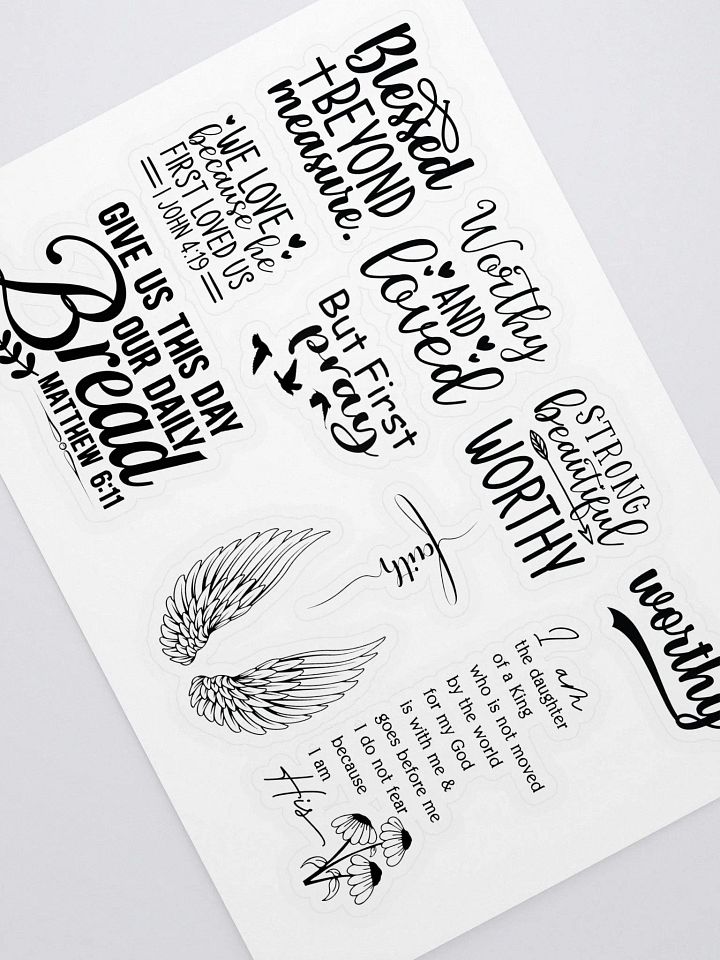 Blessed
BEYOND
measure.
WE LOVE
because he
FIRST LOVED US
1 JOHN 4:19
GIVE US THIS DAY
OUR DAILY
Bread
MATTHEW 6:11
Worthy
AND
loved
But First
pray
STRONG
beautiful
WORTHY
faith
worthy
I am
the daughter
of a King
who is not moved
by the world
for my God
is with me &
goes before me
I do not fear
because
I am
His